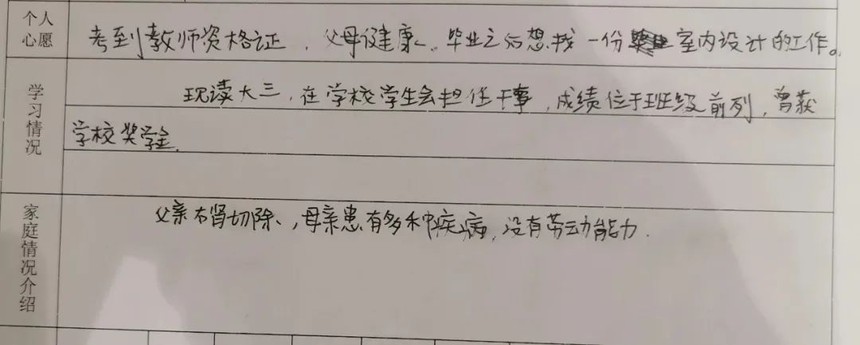 个人心愿
考到教师资格证,父母健康。毕业之后想找一份室内设计的工作。
学习情况
现读大三,在学校学生会担任干事,成绩位于班级前列,曾获
学校奖学金.
家庭情况介绍
父亲右肾切除、,母亲患有多种疾病,没有劳动能力.